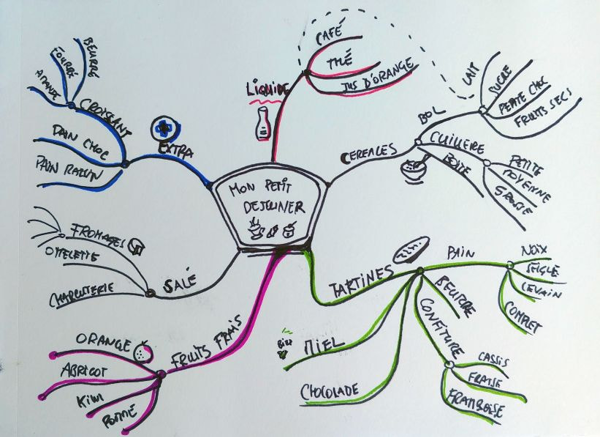 MON PETIT
DEJEUNER
LIQUIDE
CAFÉ
THÉ
JUS D'ORANGE
CEREALES
BOL
LAIT
SUCRE
PEPITE CHOC
FRUITS SECS
CUILLERE
BOITE
PETITE
MOYENNE
GROSSE
TARTINES
PAIN
NOIX
SEIGLE
LEVAIN
COMPLET
BEURRE
CONFITURE
CASSIS
FRAISE
FRAMBOISE
MIEL
CHOCOLADE
FRUITS FRAIS
ORANGE
ABRICOT
KIWI
POMME
SALÉ
FROMAGES
OMELETTE
CHARCUTERIE
EXTRA
CROISSANT
BEURRÉ
FOURRÉ
AMANDE
PAIN CHOC
PAIN RAISIN